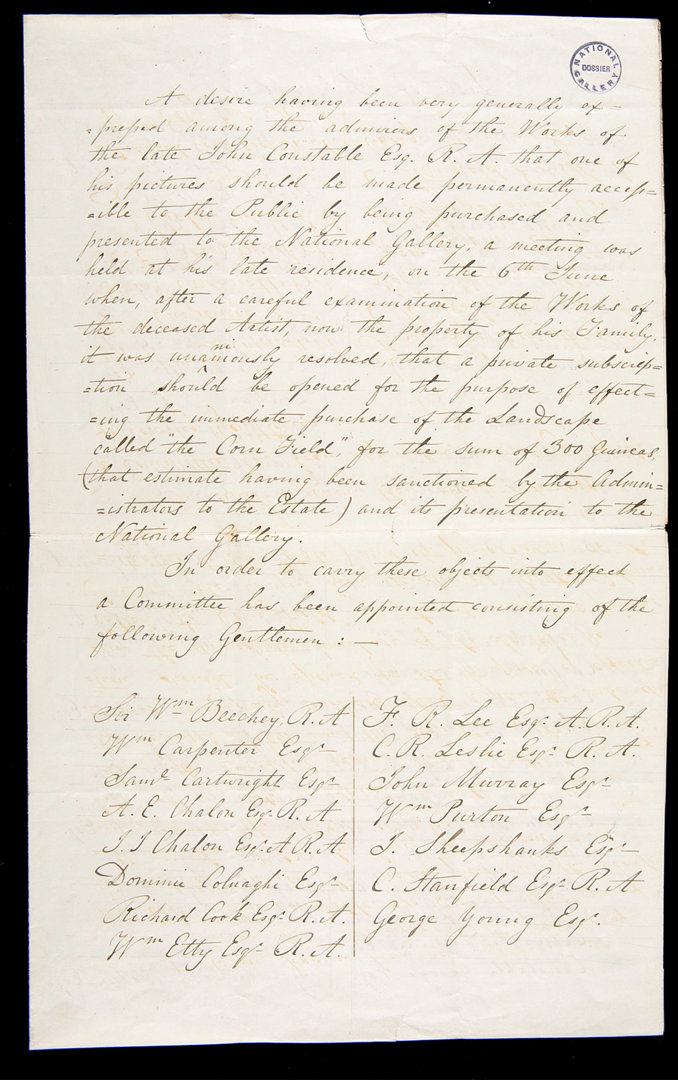 NATIONAL GALLERY
DOSSIER
A desire having been very generally ex=
=pressed among the admirers of the Works of
the late John Constable Esq. R. A. that one of
his pictures should be made permanently access=
=ible to the Public by being purchased and
presented to the National Gallery, a meeting was
held at his late residence, on the 6th June
when, after a careful examination of the Works of
the deceased Artist, now the property of his Family,
it was unanimously resolved, that a private subscrip=
=tion should be opened for the purpose of effect=
=ing the immediate purchase of the Landscape
called "the Corn Field", for the sum of 300 Guineas,
(that estimate having been sanctioned by the Admin=
=istrators to the Estate) and its presentation to the
National Gallery.
In order to carry these objects into effect
a Committee has been appointed consisting of the
following Gentlemen : —
Sir Wm Beechey, R. A
Wm Carpenter Esqr
Saml Cartwright Esqr
A. E. Chalon Esqr R. A
J. J Chalon Esqr A R. A
Dominic Colnaghi Esqr
Richard Cook Esqr R. A.
Wm Etty Esqr R. A.
F. R. Lee Esqr A. R. A.
C. R. Leslie Esqr R. A.
John Murray Esqr
Wm Purton Esqr
J. Sheepshanks Esqr
C. Stanfield Esqr R. A
George Young Esqr.